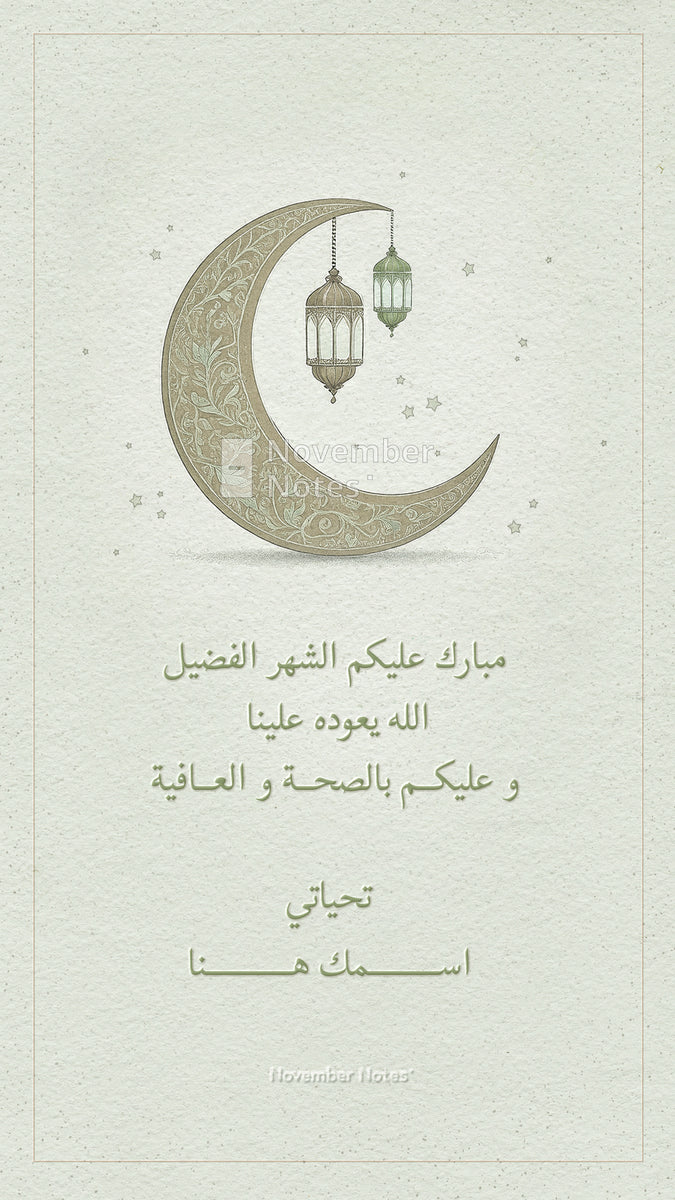 November
Notes
مبارك عليكم الشهر الفضيل
الله يعوده علينا
و عليكـــم بالصحـــة و العـــافية
تحياتي
اســـــــمك هـــــــــنا
November Notes